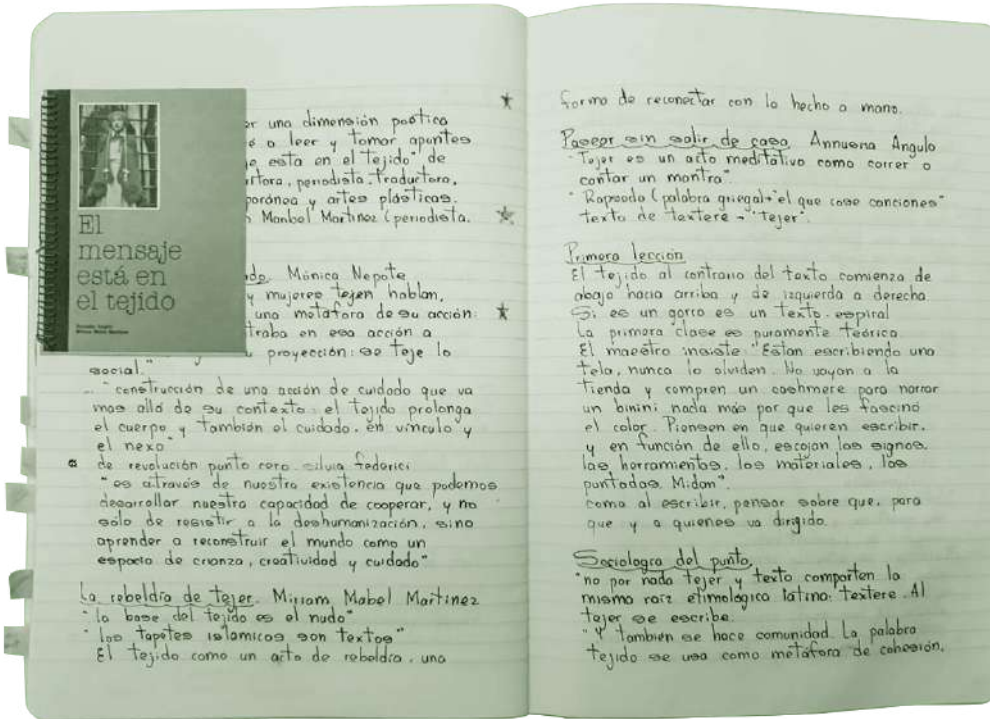 El
mensaje
está en
el tejido
er una dimensión poética
é a leer y tomar apuntes
e esta en el tejido" de
rtora, periodista, traductora,
poránea y artes plásticas.
Maribel Martínez (periodista.
do. Mónica Nepote
y mujeres tejen hablan,
una metáfora de su acción:
traba en esa acción a
proyección: se teje lo
social."
... "construcción de una acción de cuidado que va
mas allá de su contexto: el tejido prolonga
el cuerpo y también el cuidado, en vínculo y
el nexo"
de revolución punto cero. silvia federici
"es através de nuestra existencia que podemos
desarrollar nuestra capacidad de cooperar, y no
solo de resistir a la deshumanización, sino
aprender a reconstruir el mundo como un
espacio de crianza, creatividad y cuidado"
La rebeldía de tejer. Miriam Mabel Martínez
"la base del tejido es el nudo"
"los tapetes islamicos son textos"
El tejido como un acto de rebeldía, una
forma de reconectar con lo hecho a mano.
Pasear sin salir de casa, Annuska Angulo
"Tejer es un acto meditativo como correr o
cantar un mantra".
"Rapsoda (palabra griega)→"el que cose canciones"
texto de textere → "tejer".
Primera lección
El tejido al contrario del texto comienza de
abajo hacia arriba y de izquierda a derecha
Si es un gorro es un texto. espiral
La primera clase es puramente teórica
El maestro insiste "Estan escribiendo una
tela, nunca lo olviden. No vayan a la
tienda y compren un cashmere para narrar
un binini nada más por que les fascinó
el color. Piensen en que quieren escribir,
y en función de ello, escojan los signos,
las herramientas, los materiales, las
puntadas. Midan".
como al escribir, pensar sobre que, para
que y a quienes va dirigido.
Sociología del punto,
"no por nada tejer y texto comparten la
misma raíz etimologica latina: textere. Al
tejer se escribe.
"Y tambien se hace comunidad. La palabra
tejido se usa como metáfora de cohesión,